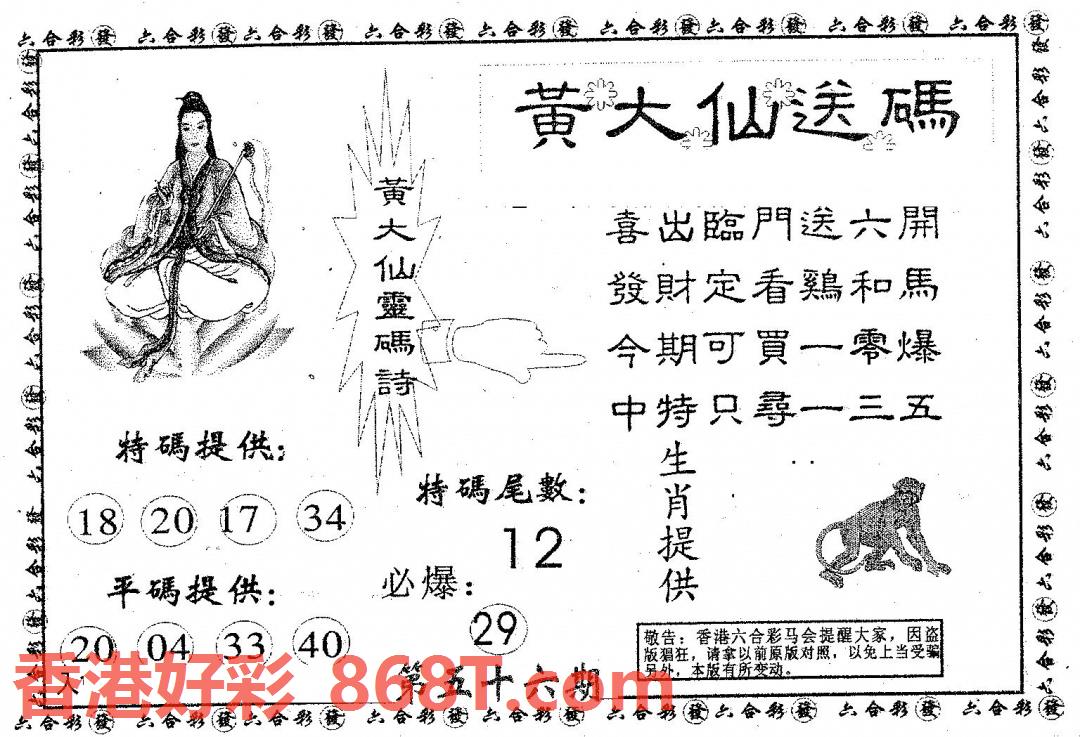 六合彩發 六合彩發 六合彩發 六合彩發 六合彩發 六合彩發 六合彩發 六合彩發 六合彩發
黃大仙送碼
黃大仙靈碼詩
喜出臨門送六開
發財定看鷄和馬
今期可買一零爆
中特只尋一三五
特碼提供:
18 20 17 34
特碼尾數:
12
生肖提供
平碼提供:
20 04 33 40
必爆:
29
敬告：香港六合彩马会提醒大家，因盗
版猖狂，请拿以前原版对照，以免上当受骗
另外，本版有所变动。
第五十六期
香港好彩 868T.com
六合彩發 六合彩發 六合彩發 六合彩發 六合彩發 六合彩發 六合彩發 六合彩發 六合彩發